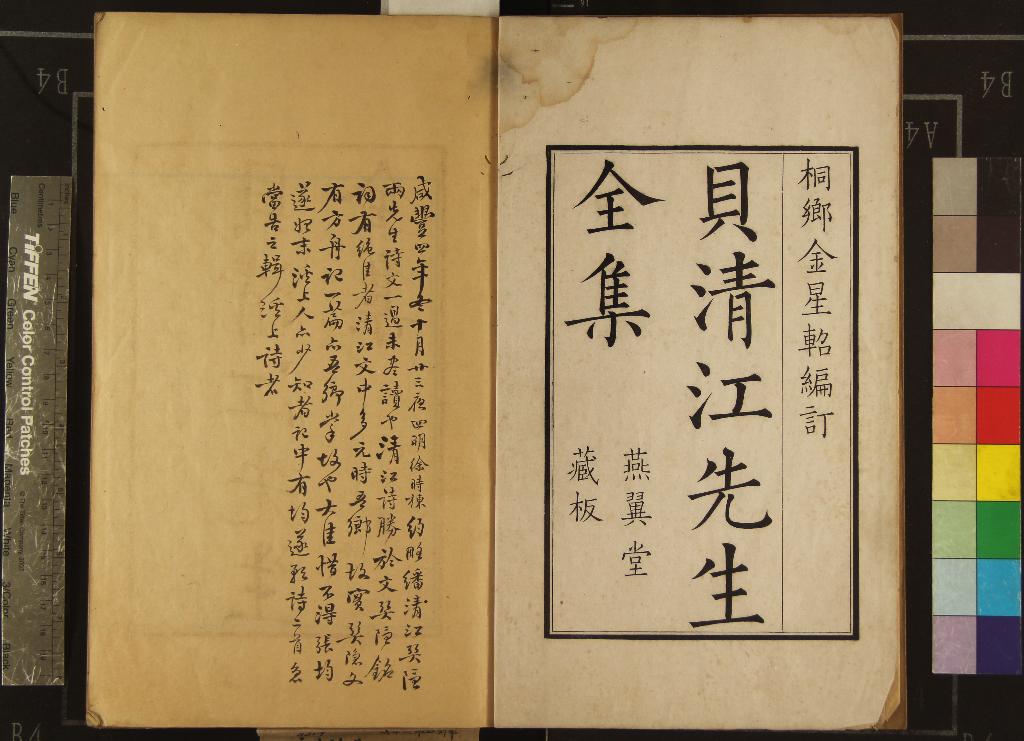 桐鄉金星軺編訂
貝清江先生
全集
燕翼堂
藏板
咸豐四年冬十月廿三夜四明徐時棟約略繙清江
兩先生詩文一過未盡讀也清江詩勝於文 銘
詞有絕佳者清江文中多元時吾鄉故實 文
有方舟記一篇亦吾鄉掌故也大佳惜不得張均
遂 上人亦少知者記中有均遂 詩二首 
當告之輯 上詩者
B4
A4
B4
TIFFEN Color Control Patches
Centimetres
Blue
Cyan
Green
Yellow
Magenta
White
3/Color
Black